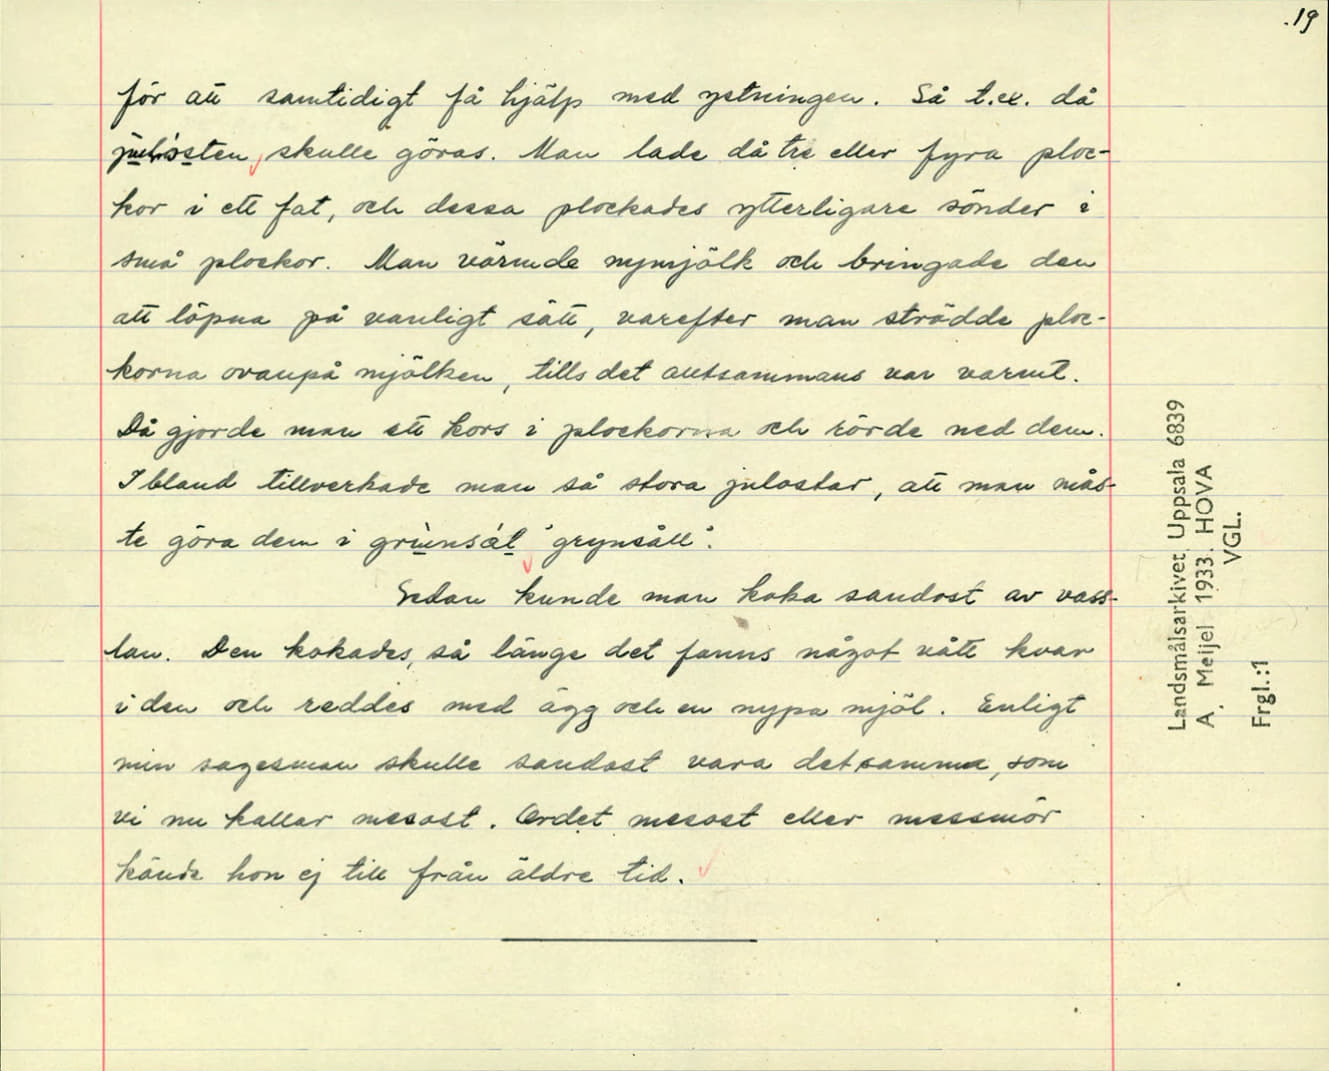 .19
för att samtidigt få hjälp med ystningen. Så t.ex. då
julosten skulle göras. Man lade då tre eller fyra ploc-
kor i ett fat, och dessa plockades ytterligare sönder i
små plockor. Man värmde nymjölk och bringade den
att löpna på vanligt sätt, varefter man strödde ploc-
korna ovanpå mjölken, tills det alltsammans var varmt.
Då gjorde man ett kors i plockorna och rörde ned dem.
Ibland tillverkade man så stora julostar, att man mås-
te göra dem i grùnsål "grynsåll".
Sedan kunde man koka sandost av vass-
lan. Den kokades, så länge det fanns något vått kvar
i den och reddes med ägg och en nypa mjöl. Enligt
min sagesman skulle sandost vara detsamma, som
vi nu kallar mesost. Ordet mesost eller messmör
kände hon ej till från äldre tid.
Landsmålsarkivet, Uppsala 6839
A. Meijel 1933. HOVA
VGL.
Frgl.:1